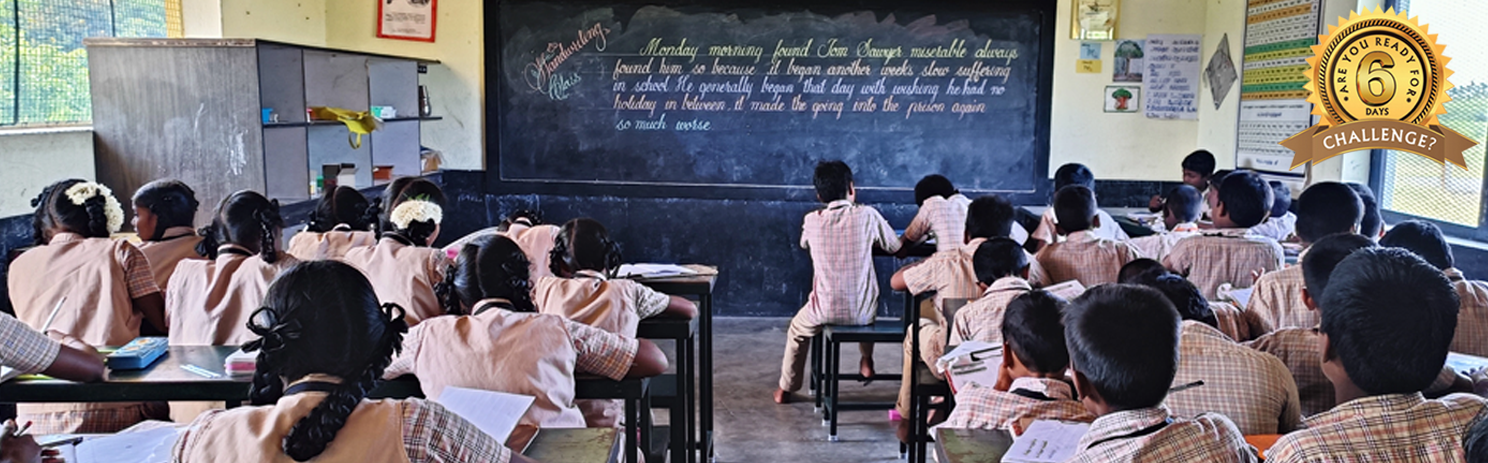 Handwriting
Class
Monday morning found Tom Sawyer miserable always
found him so because it began another weeks slow suffering
in school He generally began that day with wishing he had no
holiday in between it made the going into the prison again
so much worse
ARE YOU READY FOR
6
DAYS
CHALLENGE?